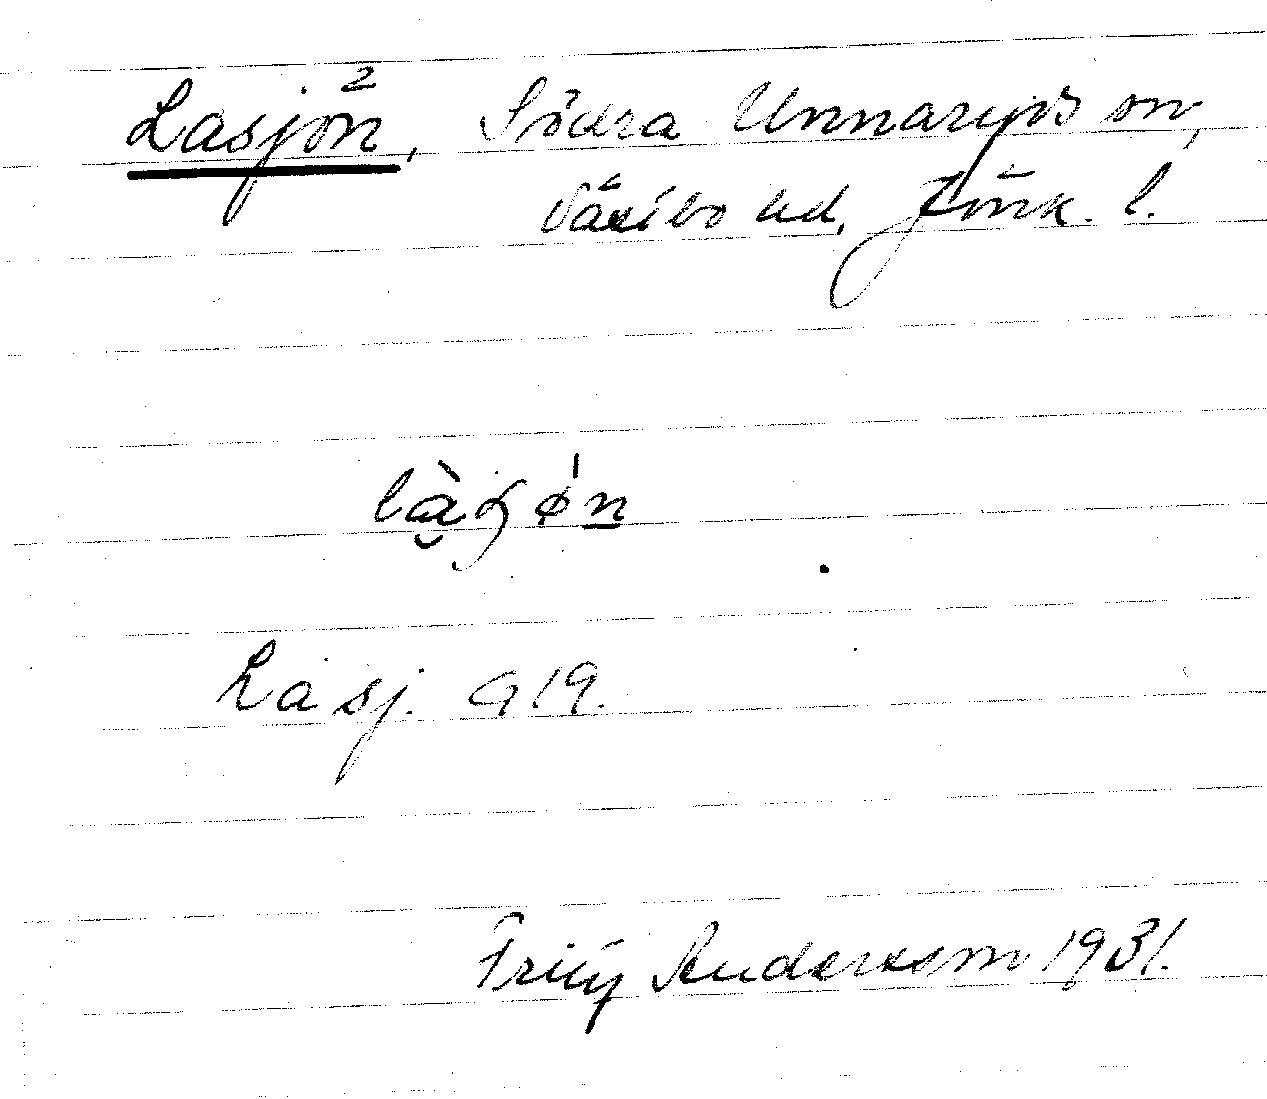 Lasjön, Södra Unnaryds sn,
Västbo hd, Jönk. l.
Lasj. G 19.
Andersson 1931.